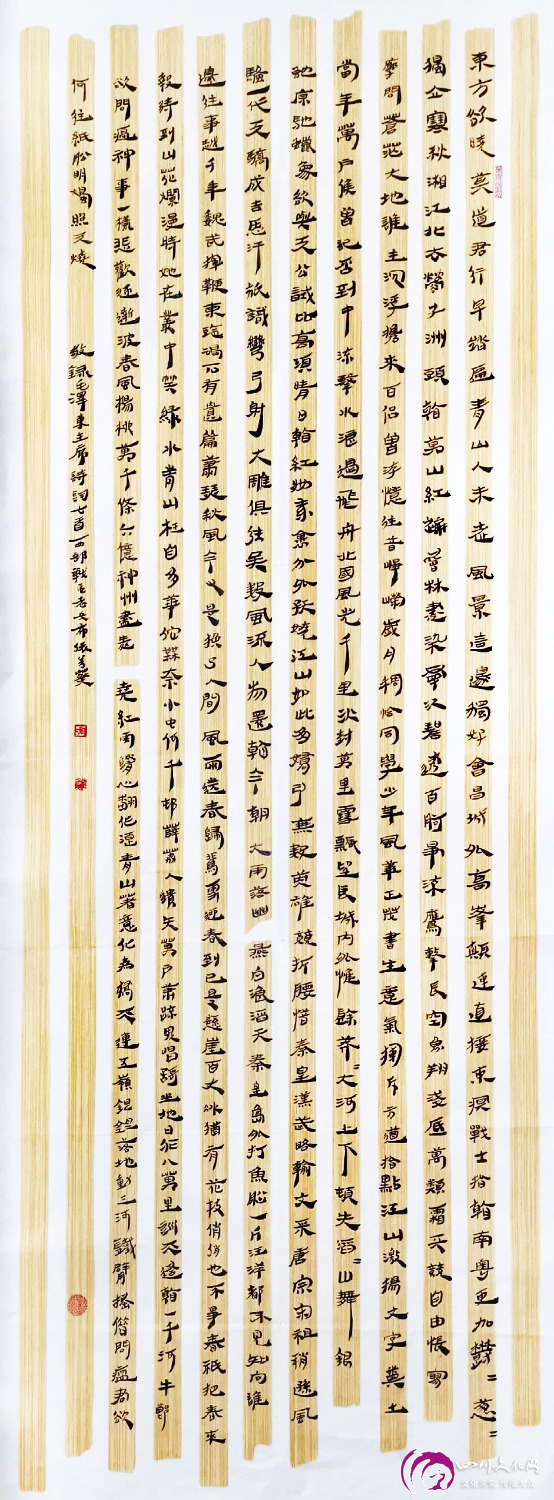 東方欲曉莫道君行早踏遍青山人未老風景這邊獨好會昌城外高峯顛連直接東溟戰士指看南粵更加鬱=蔥=
獨立寒秋湘江北去橘子洲頭看萬山紅遍層林盡染漫江碧透百舸爭流鷹擊長空魚翔淺底萬類霜天競自由悵寥
廓問蒼茫大地誰主沉浮攜來百侶曾游憶往昔崢嶸歲月稠恰同學少年風華正茂書生意氣揮斥方遒指點江山激揚文字糞土
當年萬戶侯曾記否到中流擊水浪遏飛舟北國風光千里冰封萬里雪飄望長城內外惟餘莽=大河上下頓失滔=山舞銀
蛇原馳蠟象欲與天公試比高須晴日看紅妝素裹分外妖嬈江山如此多嬌引無數英雄競折腰惜秦皇漢武略輸文采唐宗宋祖稍遜風
騷一代天驕成吉思汗祇識彎弓射大雕俱往矣數風流人物還看今朝大雨落幽燕白浪滔天秦皇島外打魚船一片汪洋都不見知向誰
邊往事越千年魏武揮鞭東臨碣石有遺篇蕭瑟秋風今又是換了人間風雨送春歸飛雪迎春到已是懸崖百丈冰猶有花枝俏俏也不爭春祇把春來
報待到山花爛漫時她在叢中笑綠水青山枉自多華佗無奈小虫何千邨薜荔人遺矢萬戶蕭疏鬼唱歌坐地日行八萬里巡天遙看一千河牛郎
欲問瘟神事一樣悲歡逐逝波春風楊柳萬千條六億神州盡舜堯紅雨隨心翻作浪青山著意化為橋天連五嶺銀鋤落地動三河鐵臂搖借問瘟君欲
何往紙船明燭照天燒
敬錄毛澤東主席詩詞七首西部戰區老
四川文化网